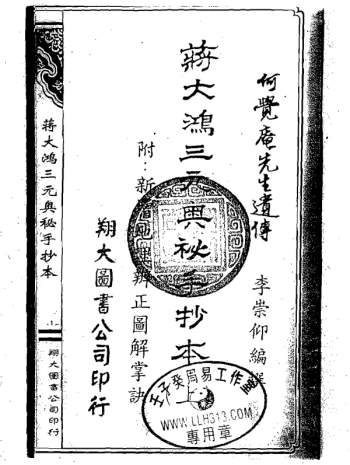 何覺庵先生遺傳
李崇仰編
蔣大鴻三元奧秘手抄本
附:新
辨正圖解掌訣
翔大圖書公司印行
蔣大鴻三元奧秘手抄本
翔大圖書公司印行
壬子癸局易工作
WWW.LLH313.COM
專用章